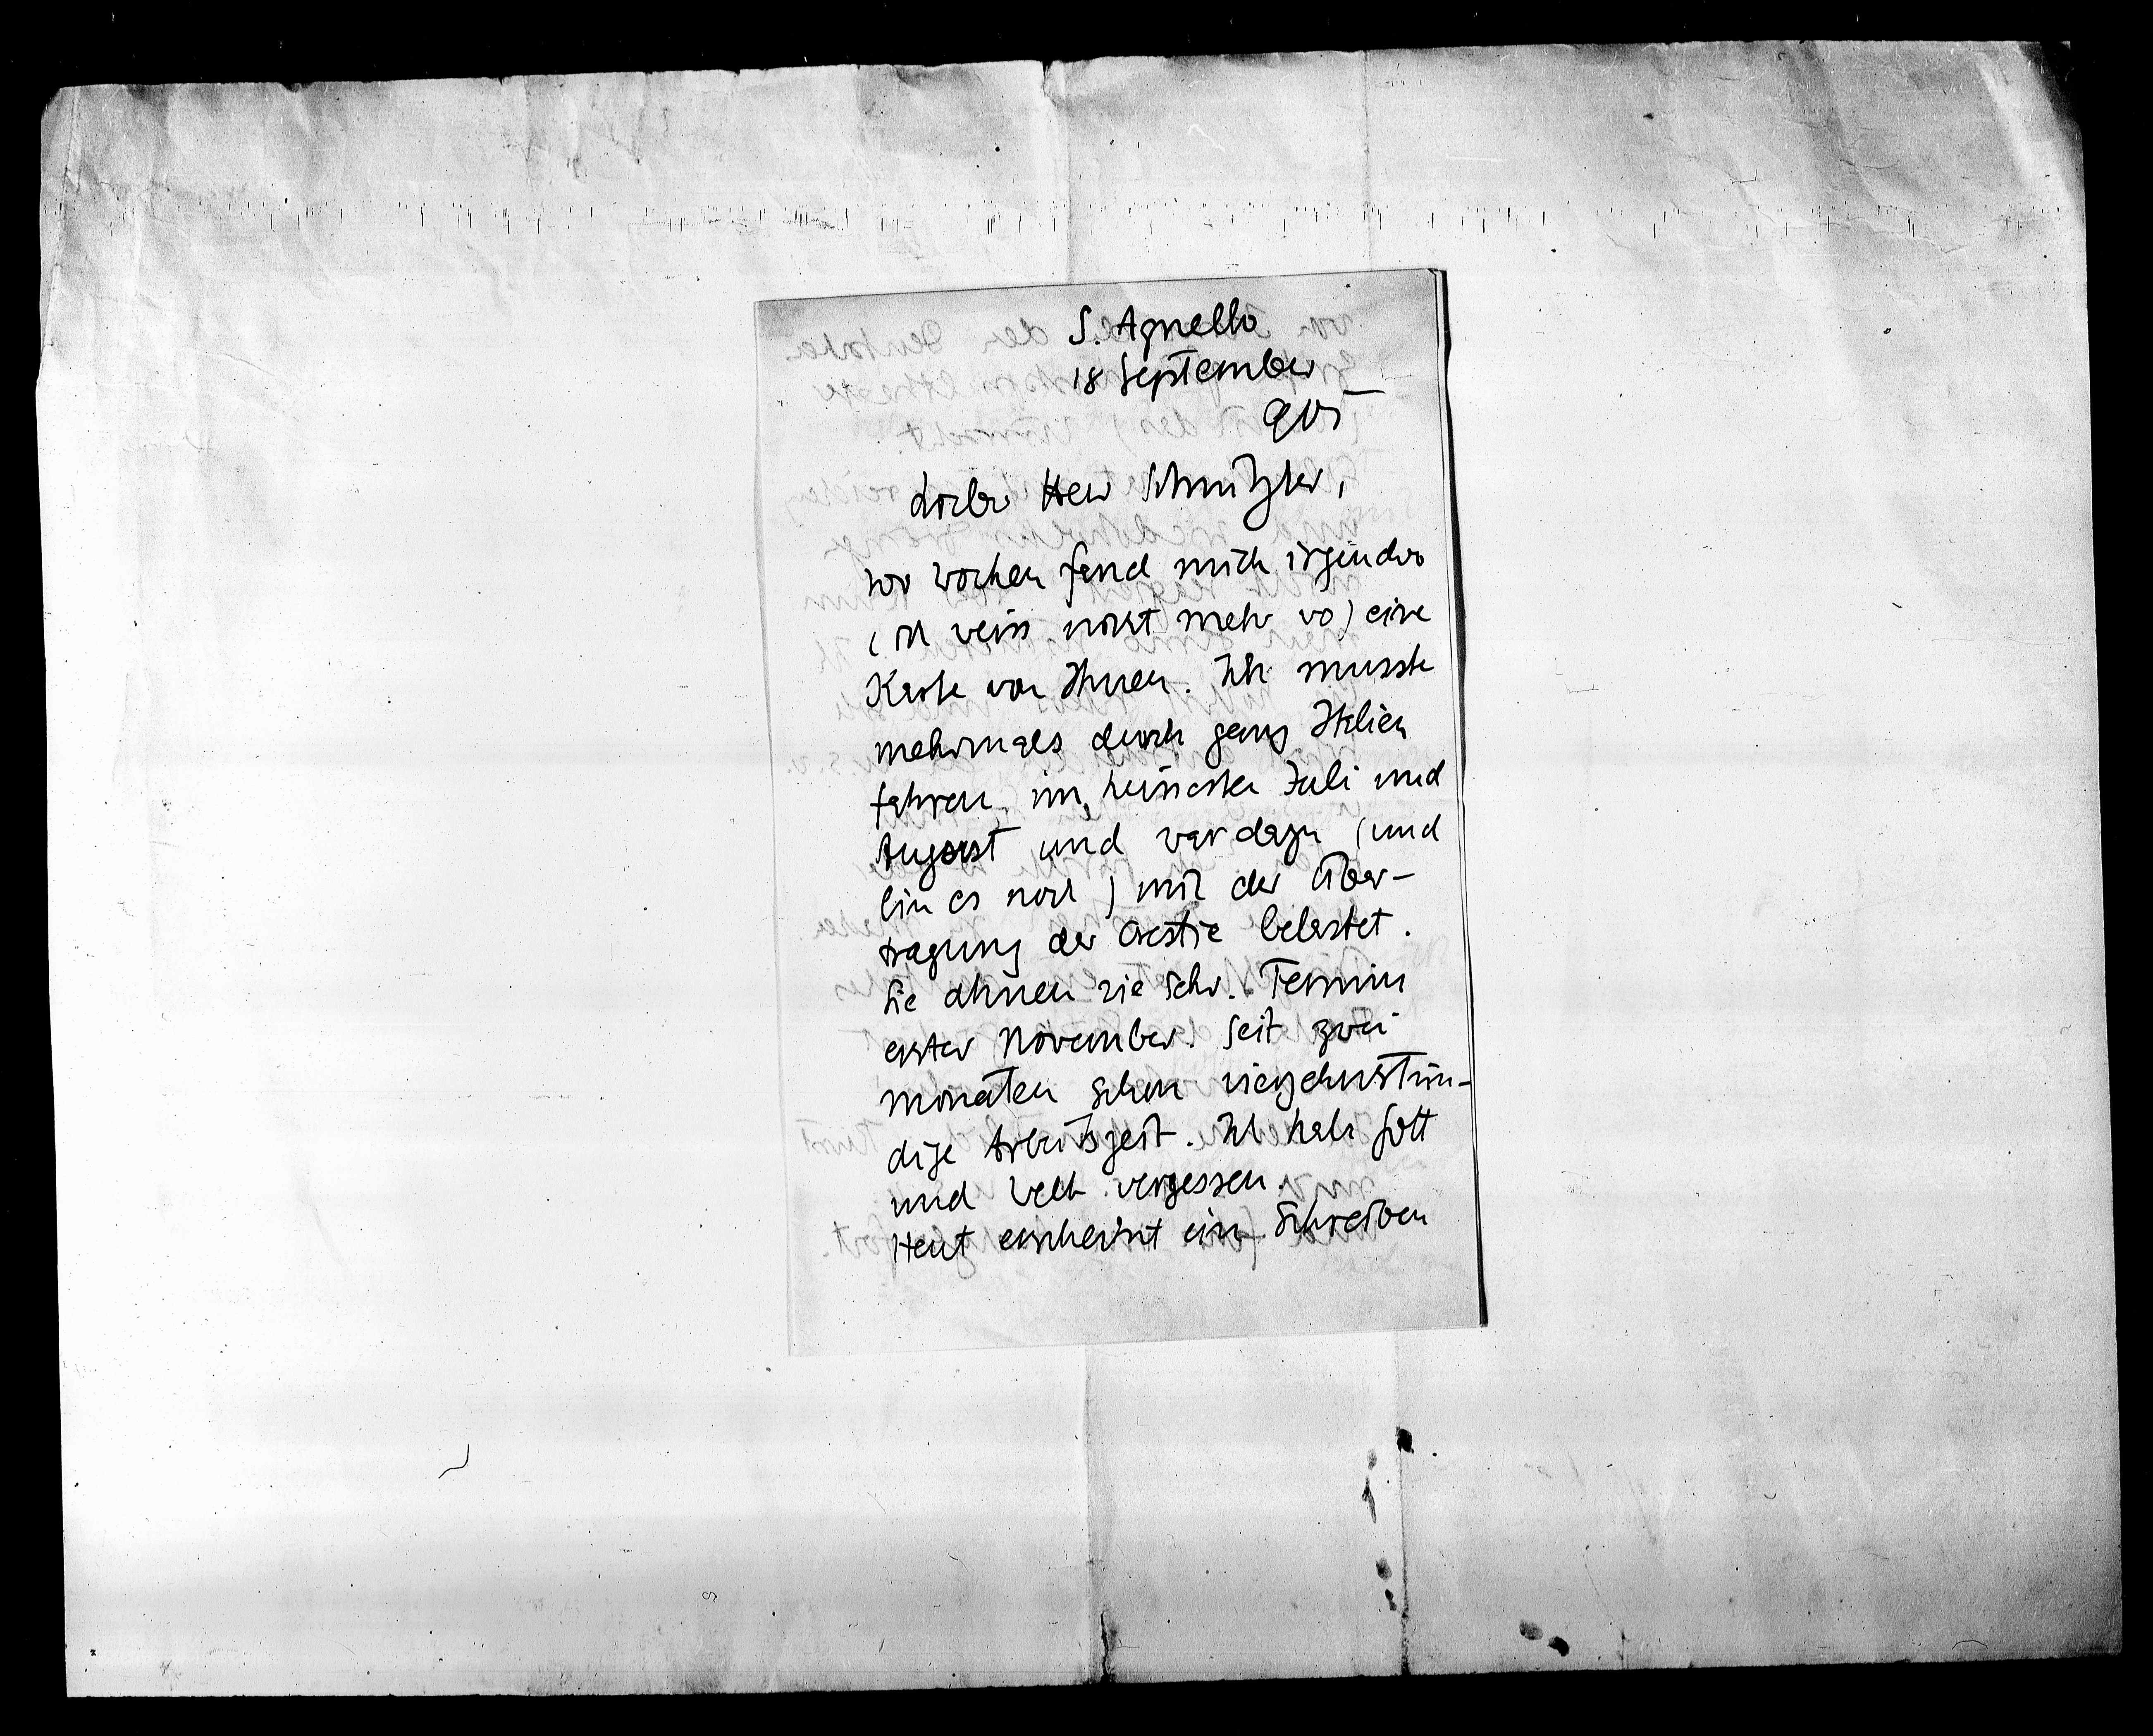 S. Agnello
18 September
Lieber Herr Schnitzler,
vor Wochen fand mich irgendwo
(ich weiss nicht mehr wo) eine
Karte von Ihnen. Ich musste
mehrmals durch ganz Italien
fahren, im heissesten Juli und
August und war dazu (und
bin es noch) mit der Über-
tragung der Orestie belastet.
Sie ahnen wie sehr. Termin
erster November. Seit zwei
Monaten schon vierzehnstün-
dige Arbeitszeit. Ich habe Gott
und Welt vergessen.
Heut erscheint ein Schreiben